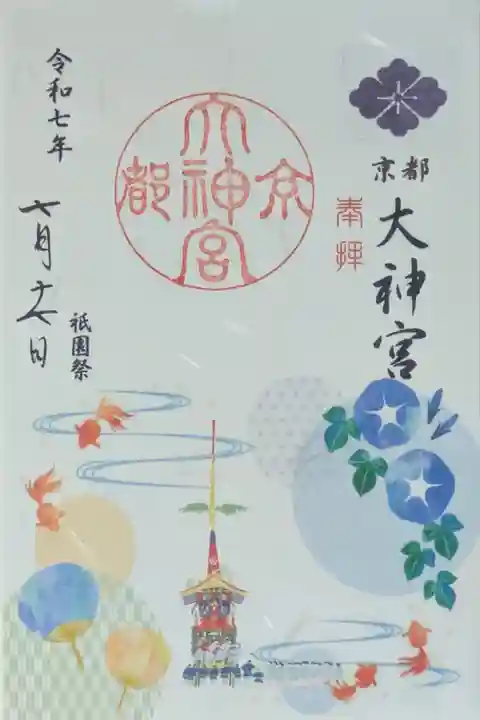 京都
大神宮
奉拝
京都大神宮
令和七年
七月十日
祇園祭